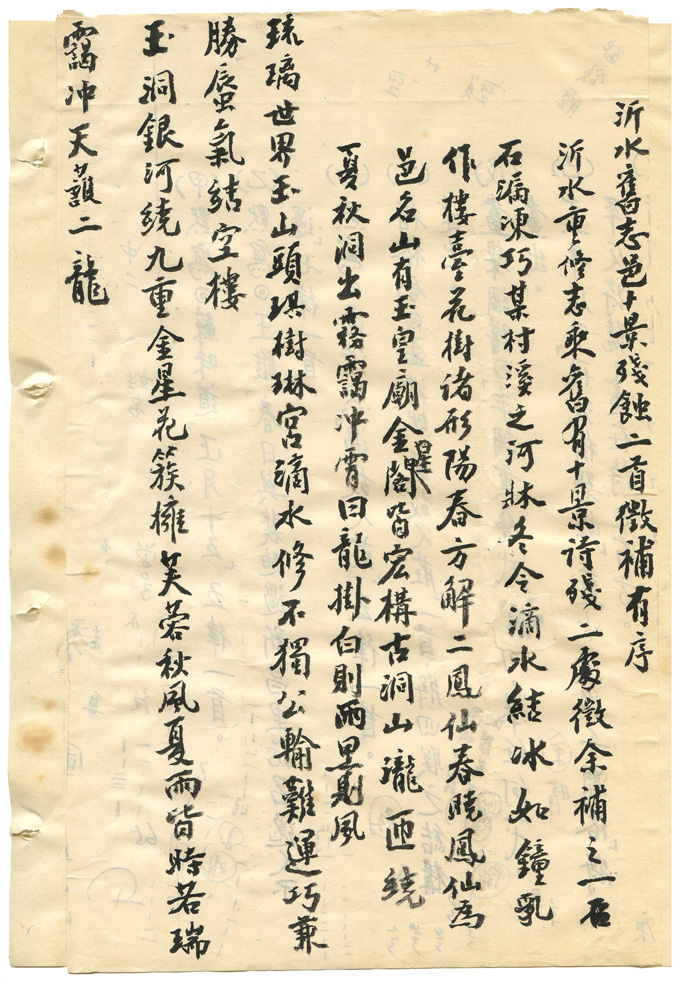 沂水舊志邑十景殘蝕二首徵補有序
沂水重修志乘舊有十景詩殘二處徵余補之一石
石漏凍巧某村溪之河牀冬令滴水結冰如鐘乳
作樓臺花樹諸形陽春方解二鳳仙春曉鳳仙為
邑名山有玉皇廟金星閣皆宏構古洞山瀧匝繞
夏秋洞出霧靄冲霄曰龍掛白則雨黑則風
琉璃世界玉山頭琪樹琳宮滴水修不獨公輸難運巧兼
勝蜃氣結空樓
玉洞銀河繞九重金星花簇擁芙蓉秋風夏雨皆時若瑞
靄冲天護二龍